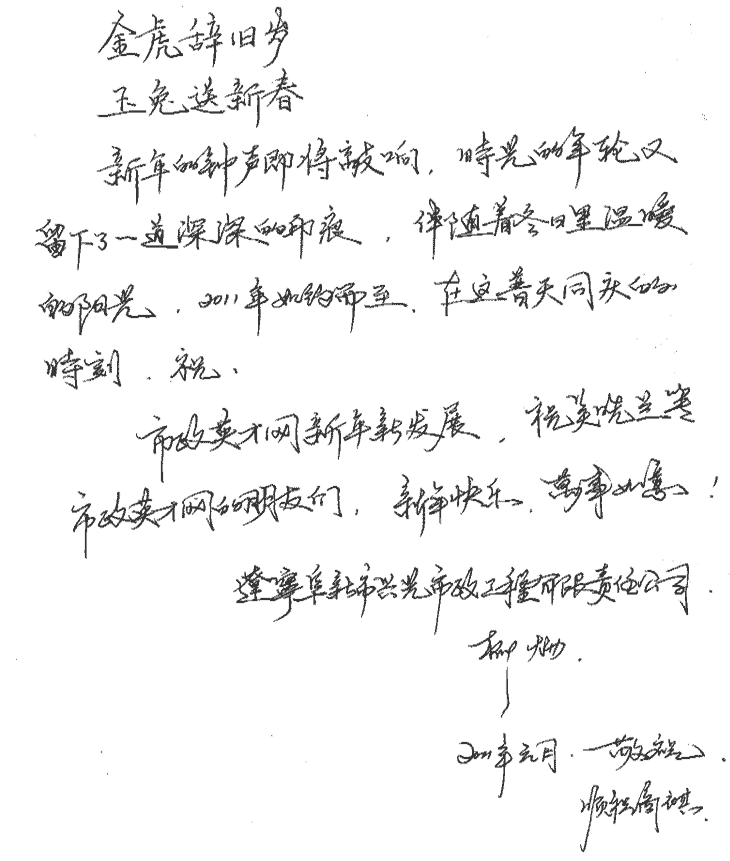 金虎辞旧岁
玉兔送新春
新年的钟声即将敲响，時光的年轮又
留下了一道深深的印痕，伴随着冬日里温暖
的阳光，2011年如约而至，在这普天同庆的
時刻，祝、
市政英才网新年新发展，祝关
市政英才网的朋友们，新年快乐，萬事如意！
遼寧阜新市兴光市政工程有限责任公司.
柳
2011年元月. 敬祝.
顺祝